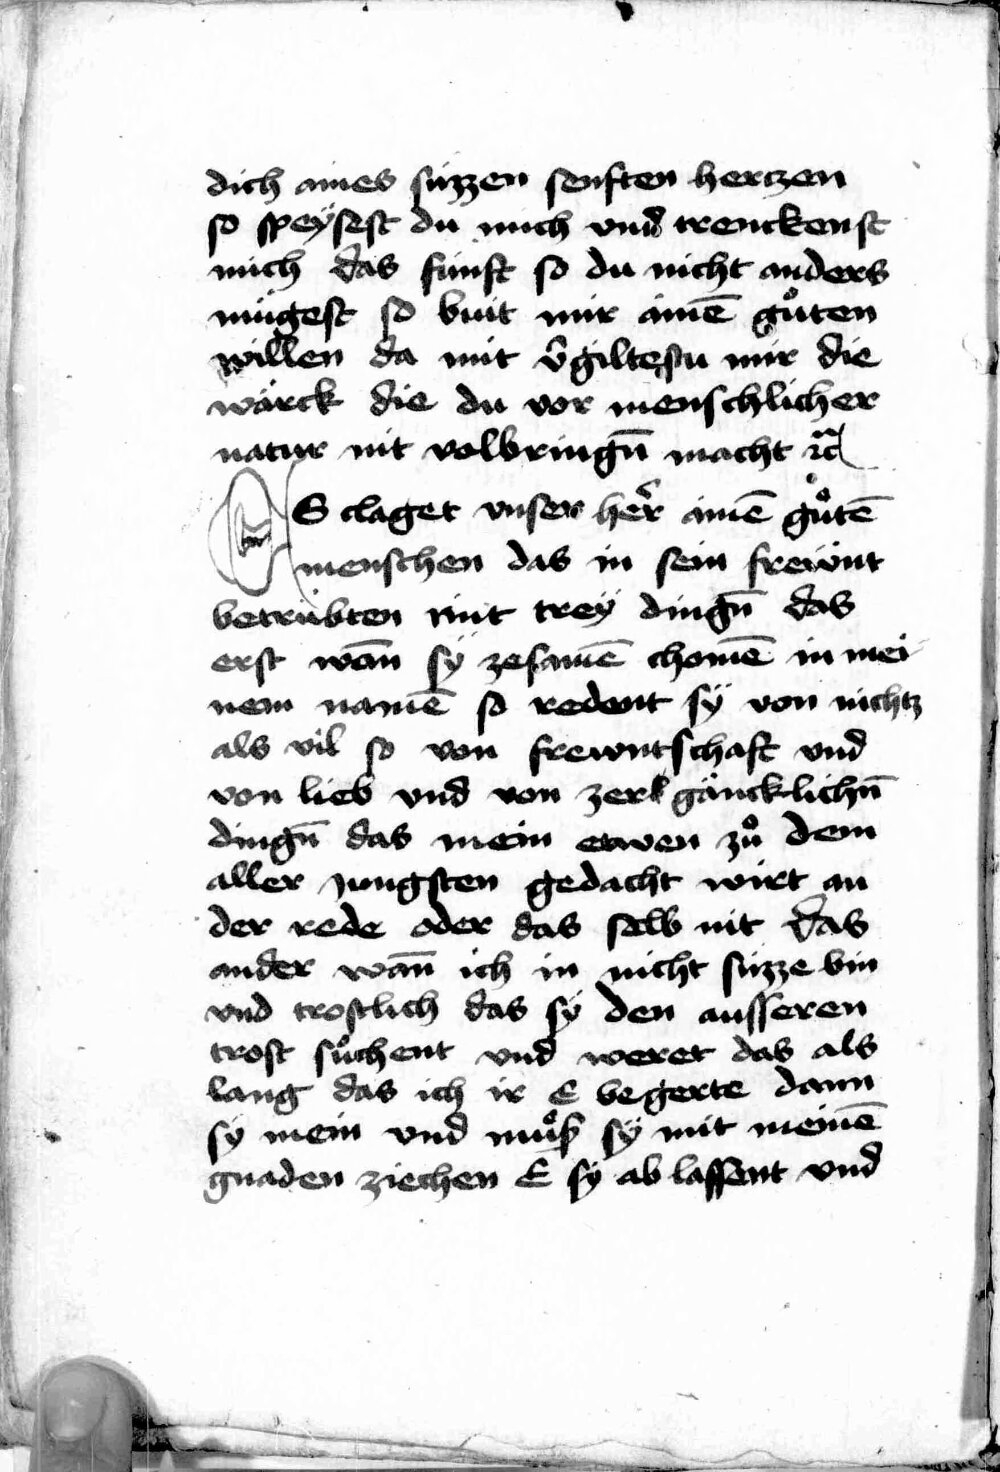 dich aines süzzen senften hertzen
so speÿsest du mich vnd trenckenst
mich das fünft so du nicht anders
mügest so bint mir ainē gůten
willen da mit v̄giltestu mir die
wärck die du vor menschlicher
natur nit volbringn̄ macht ꝛc
ES claget vnser her̄ ainē gůtē
menschen das in sein frewnt
betrübten mit treÿ dingn̄ das
erst wan̄ sÿ zesamē chomē in mei
nem namē so redent sÿ von nichtz
als vil so von frewntschaft vnd
von lieb vnd von zer gäncklichn̄
dingn̄ das mein etwen zů dem
aller jungsten gedacht wirt an
der rede oder das selb nit das
ander wan̄ ich in nicht süzze bin
vnd trostlich das sÿ den ausseren
trost sůchent vnd weret das als
lang das ich ir E begerte dann
sÿ mein vnd můß sÿ mit meinē
gnaden ziechen E sÿ ab lassent vnd